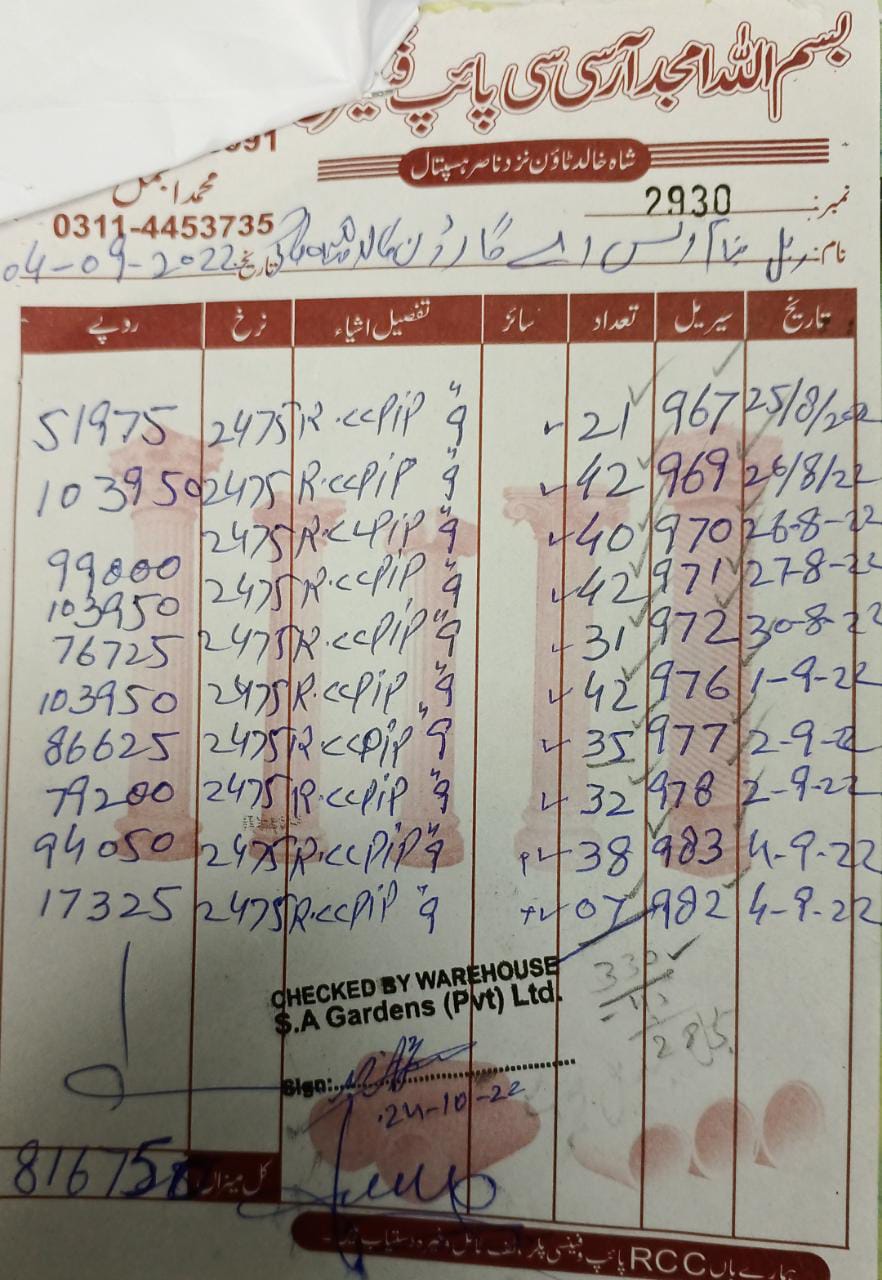 بسم اللہ امجد آر سی سی پائپ
شاہ خالد ٹاؤن نزد ناصر ہسپتال
محمد اجمل
0311-4453735
نمبر: 2930
نام: بل بنام ایس اے گارڈن
تاریخ: 04-09-2022
تاریخ سیریل تعداد سائز تفصیل اشیاء نرخ روپے
25/8/202 967 21 9" R.ccPiP 2475 51975
26/8/22 969 42 9" R.ccPiP 2475 103950
26-8-22 970 40 9" R.ccPiP 2475 99000
27-8-22 971 42 9" R.ccPiP 2475 103950
30-8-22 972 31 9" R.ccPiP 2475 76725
1-9-22 976 42 9" R.ccPiP 2475 103950
2-9-22 977 35 9" R.ccPiP 2475 86625
2-9-22 978 32 9" R.ccPiP 2475 79200
4-9-22 983 38 9" R.ccPiP 2475 94050
4-9-22 982 07 9" R.ccPiP 2475 17325
330
CHECKED BY WAREHOUSE
S.A Gardens (Pvt) Ltd.
285
Sign:
24-10-22
کل میزان 816750
ہمارے ہاں RCC پائپ و فینسی پلر